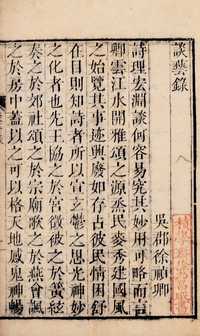 談藝錄
吳郡徐禎卿
詩理宏淵談何容易究其妙用可略而言
卿雲江水開雅頌之源烝民麥秀建國風
之始覽其事迹興廢如存占彼民情困舒
在目則知詩者所以宣玄鬱之思光神妙
之化者也先王協之於宮徵被之於簧絃
奏之於郊社頌之於宗廟歌之於燕會諷
之於房中蓋以之可以格天地感鬼神暢